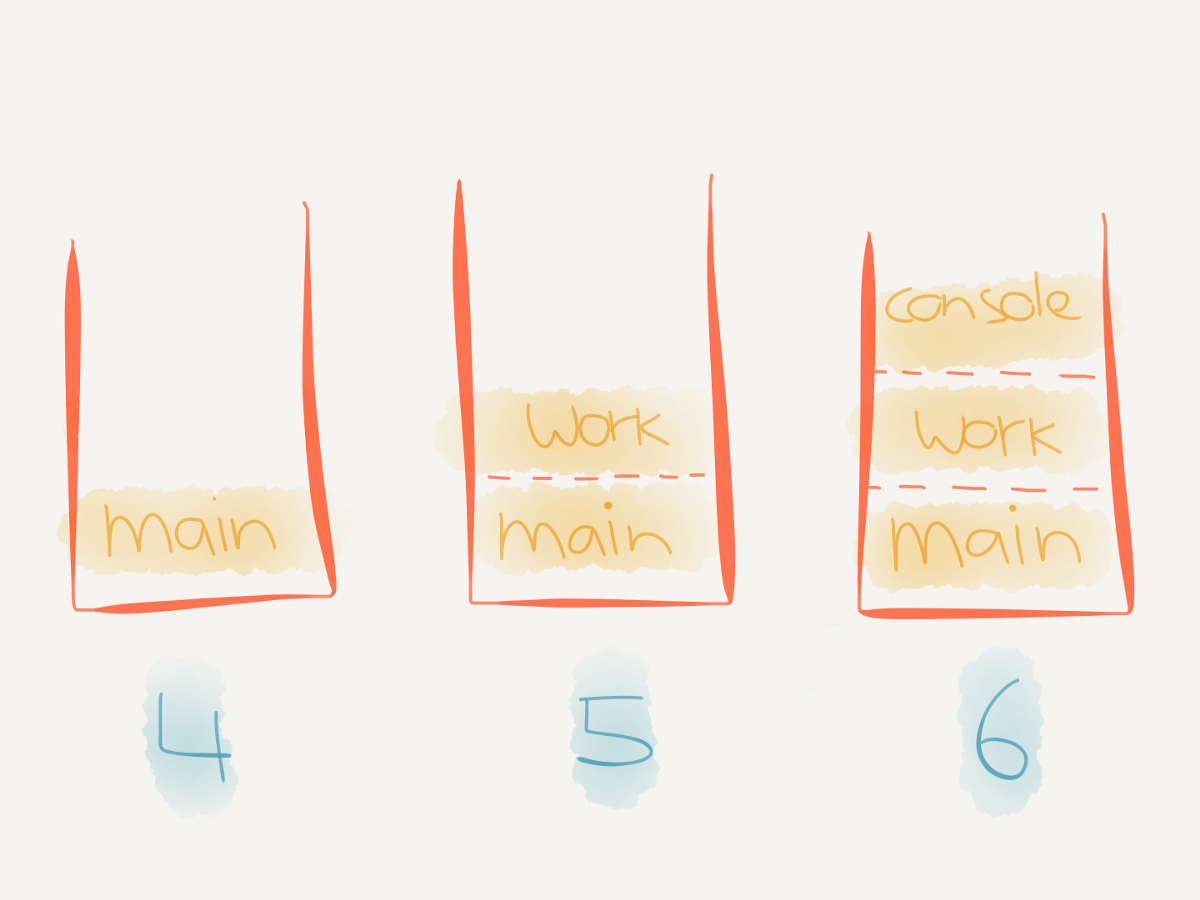 main
4
work
main
5
console
work
main
6